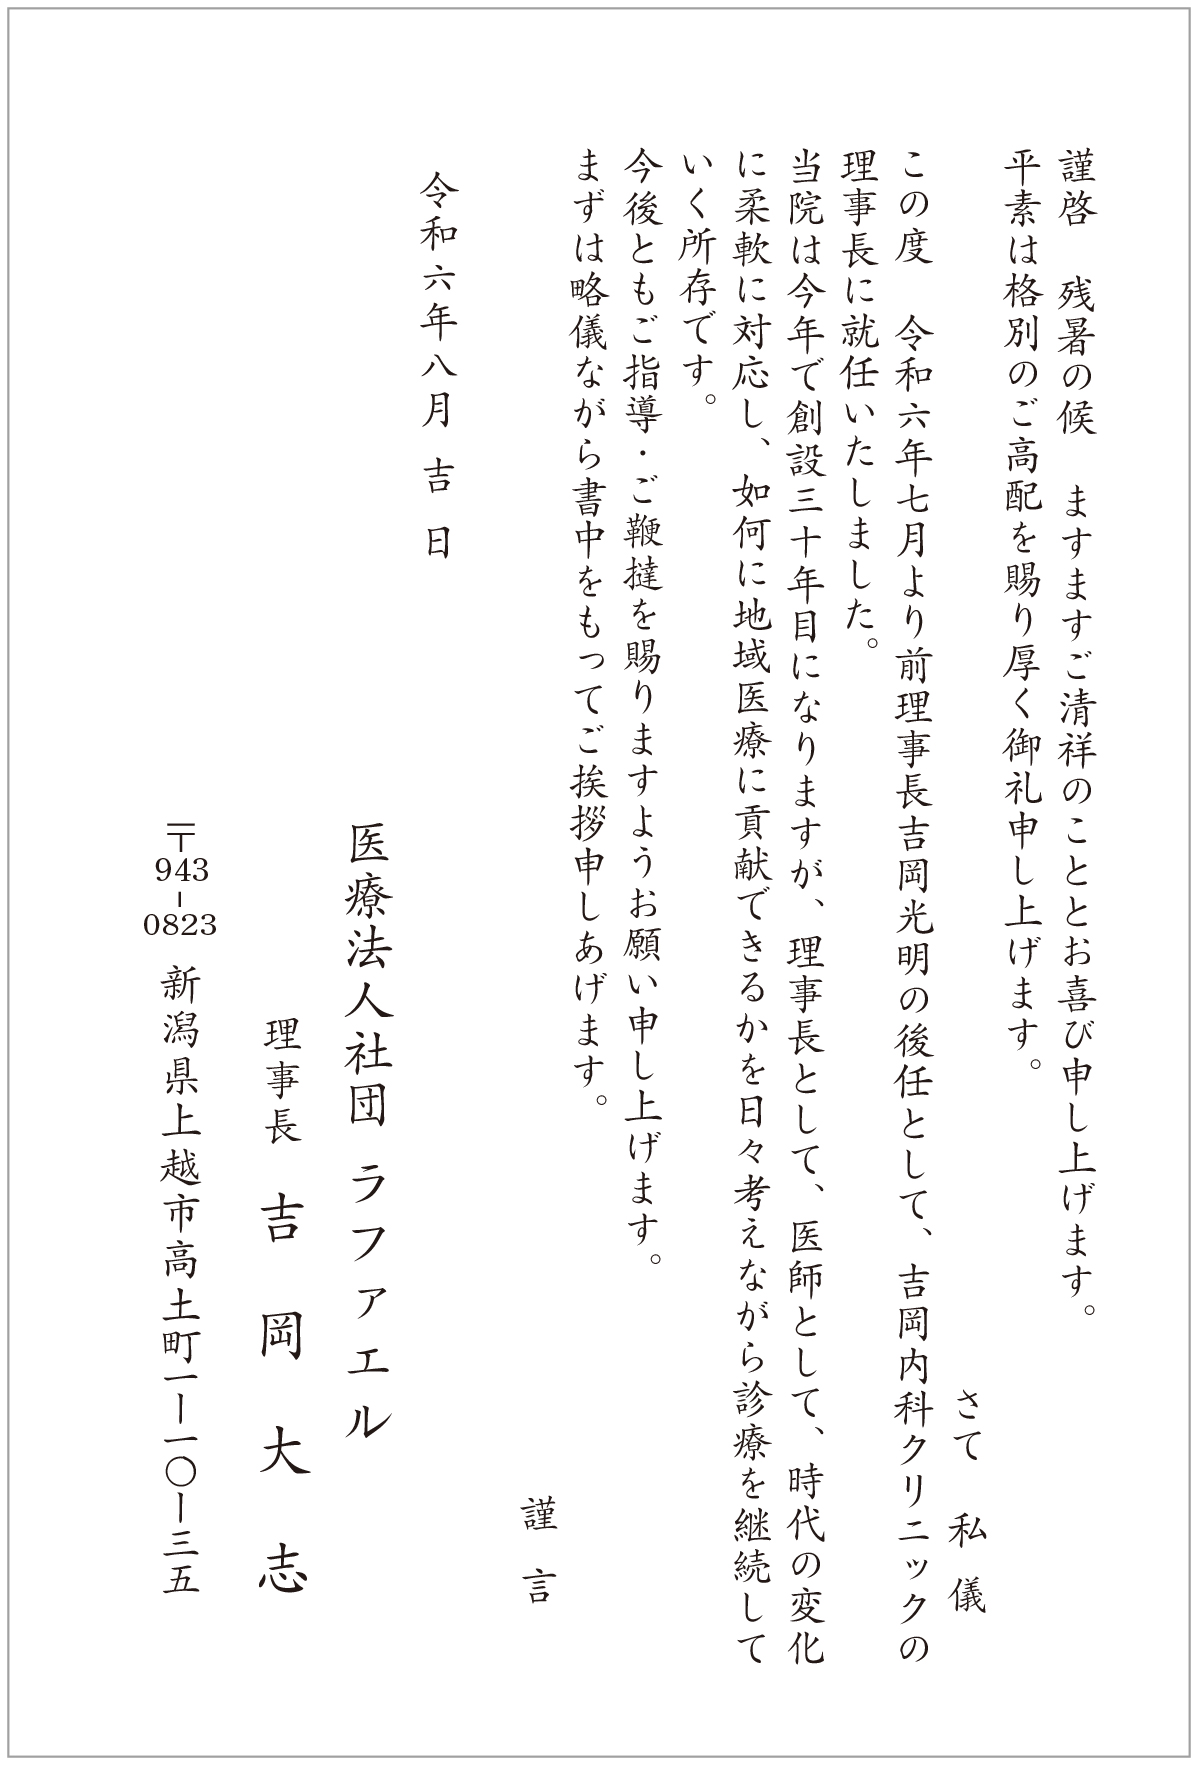 謹啓　残暑の候　ますますご清祥のこととお喜び申し上げます。
平素は格別のご高配を賜り厚く御礼申し上げます。
さて　私　儀
この度　令和六年七月より前理事長吉岡光明の後任として、吉岡内科クリニックの
理事長に就任いたしました。
当院は今年で創設三十年目になりますが、理事長として、医師として、時代の変化
に柔軟に対応し、如何に地域医療に貢献できるかを日々考えながら診療を継続して
いく所存です。
今後ともご指導・ご鞭撻を賜りますようお願い申し上げます。
まずは略儀ながら書中をもってご挨拶申しあげます。
謹　言
令和六年八月　吉　日
医療法人社団 ラファエル
理事長　吉　岡　大　志
〒943-0823　新潟県上越市高土町一ー一〇ー三五